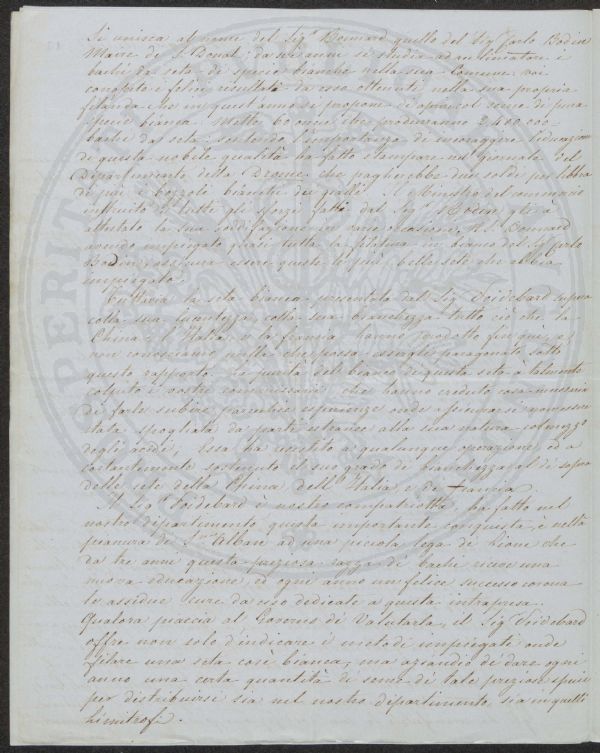 Si unisca al nome del Sigr. Bonnard quello del Sigr Carlo Bodin
Maire de S. Donat: da sei anni si studia ad alimentare i
bachi da seta di specie bianche nella sua Comune, noi
confortò i felici risultati da esso ottenuti nella sua propria
filanda che in quest'anno si propone di aprire col seme di pura
specie bianca. Mette 60 oncie che produrranno 2,400,000
bachi da seta: sentendo l'importanza di incoraggire l'educazione
di questa nobile qualità ha fatto stampare nel giornale del
Dipartimento della Drome, che pagherebbe due soldi per libbra
di più i bozzoli bianchi dei gialli. Il Ministro del
instruito di tutti gli sforzi fatti dal Sigr Bodin, gli à
attestato la sua soddisfazione in varie occasioni. Il Sr Bonnard
avendo impiegato quasi tutta la filatura in bianco del Sigr Carlo
Bodin, assicura essere queste le più belle sete che abbia
impiegato.
Tuttavia la seta bianca presentata dal Sigr Poidebard supera
colla sua lucentezza, colla sua bianchezza tutto ciò che la
China e l'Italia, e la francia hanno prodotto fin qui, e
non conosciamo nulla che possa essergli paragonato sotto
questo rapporto. La purità del bianco di questa seta à talmente
colpito i vostri commissari, che hanno creduto cosa necessaria
di farle subire parecchie esperienze onde assicurarsi non essere
stata spogliata da parti estranee alla sua natura col mezzo
degli acidi; Essa ha resistito a qualunque operazione, ed à
costantemente sostenuto il suo grado di bianchezza al di sopra
delle sete della China dell'Italia e da francia.
Il Sigr Poidebard è nostro compatriotta, ha fatto nel
nostro dipartimento questa importante conquista, è nella
pianura di St. Albano ad una piccola lega di Lione che
da tre anni questa preziosa razza di bachi riceve una
nuova educazione, ed ogni anno un felice successo corona
le assidue cure da esso dedicate a questa intrapresa.
Qualora piaccia al Governo di valutarla, il Sigr Poidebard
offre non solo d'indicare i metodi impiegati onde
filare una seta così bianca, ma aziandio di dare ogni
anno una certa quantità di seme di tale preziosa specie
per distribuirsi sia nel nostro dipartimento, sia in quelli
limitrofi.